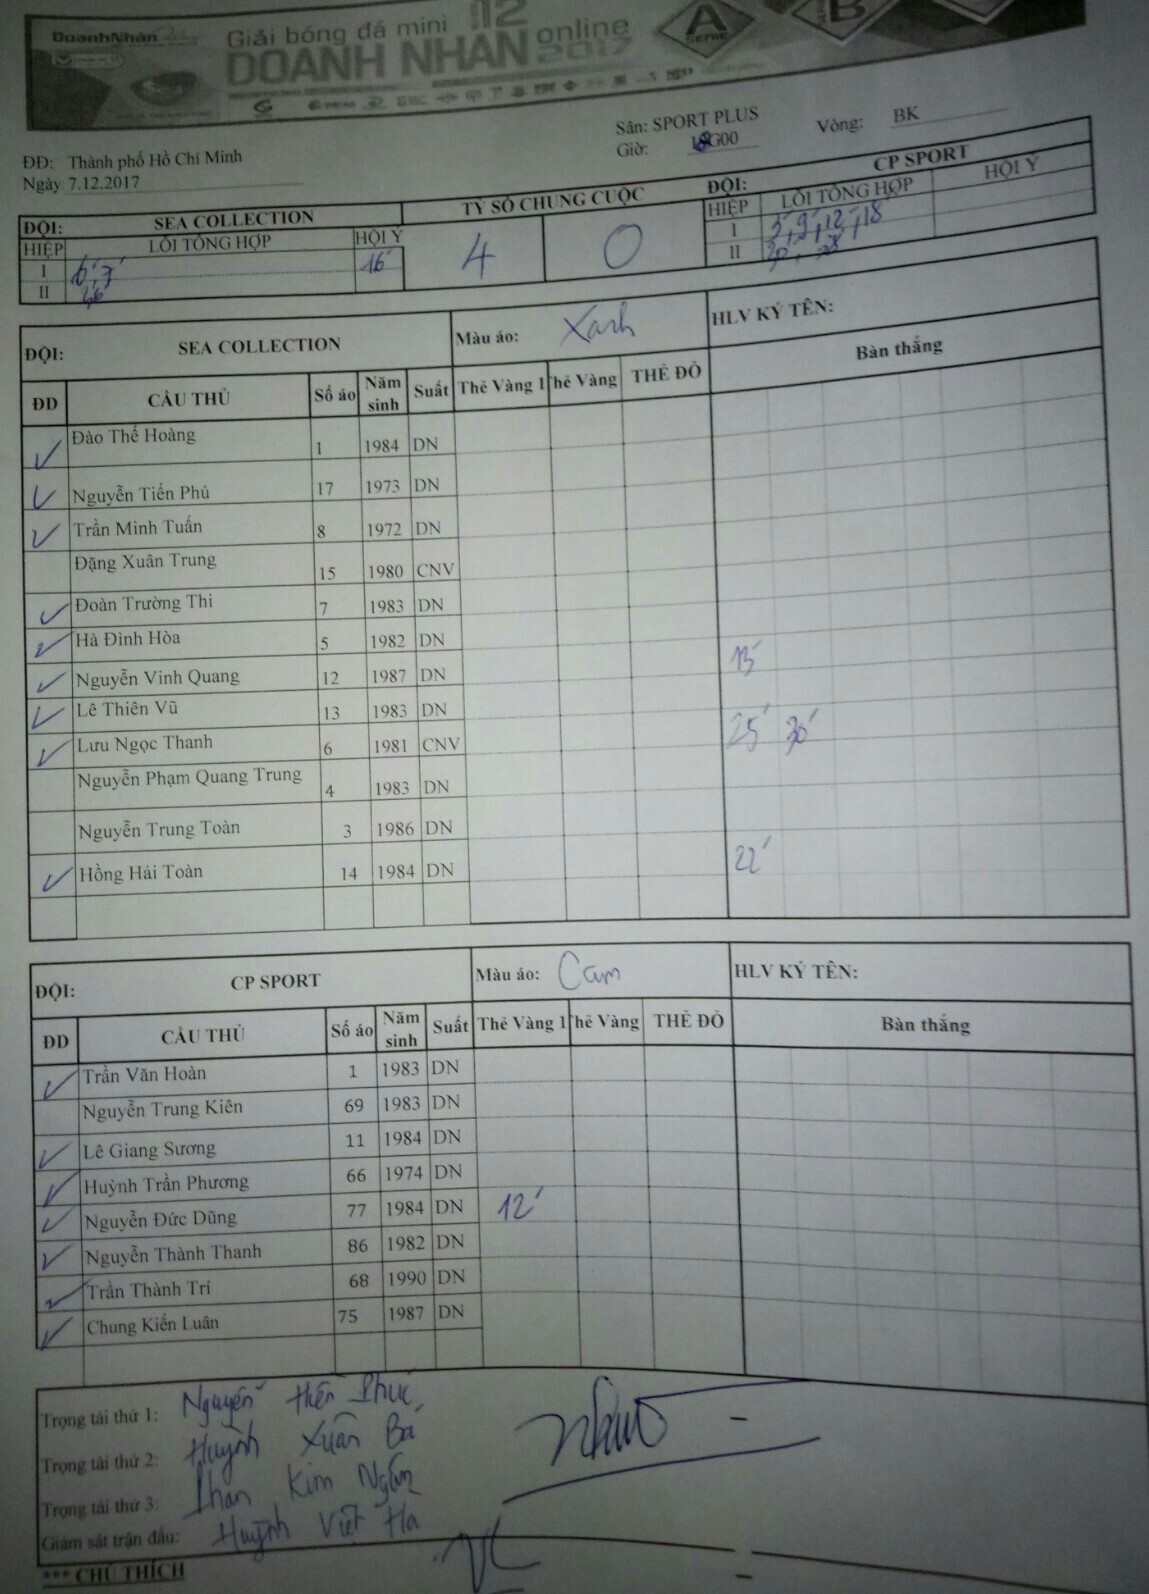 DoanhNhân
Giải bóng đá mini 12
DOANH NHAN online 2017
A
SERIE
B
ĐĐ: Thành phố Hồ Chí Minh
Ngày 7.12.2017
Sân: SPORT PLUS
Giờ: G00
Vòng: BK
ĐỘI: SEA COLLECTION TỶ SỐ CHUNG CUỘC ĐỘI: CP SPORT
HIỆP LỖI TỔNG HỢP HỘI Ý 4 0 HIỆP LỖI TỔNG HỢP HỘI Ý
I 6', 7' 16' I 3', 9', 12', 18
II II
ĐỘI: SEA COLLECTION Màu áo: Xanh HLV KÝ TÊN:
ĐD CẦU THỦ Số áo Năm sinh Suất Thẻ Vàng 1 Thẻ Vàng THẺ ĐỎ Bàn thắng
Đào Thế Hoàng 1 1984 DN
Nguyễn Tiến Phú 17 1973 DN
Trần Minh Tuấn 8 1972 DN
Đặng Xuân Trung 15 1980 CNV
Đoàn Trường Thi 7 1983 DN
Hà Đình Hòa 5 1982 DN
Nguyễn Vinh Quang 12 1987 DN 15'
Lê Thiên Vũ 13 1983 DN
Lưu Ngọc Thanh 6 1981 CNV 25' 30'
Nguyễn Phạm Quang Trung 4 1983 DN
Nguyễn Trung Toàn 3 1986 DN
Hồng Hải Toàn 14 1984 DN 22'
ĐỘI: CP SPORT Màu áo: Cam HLV KÝ TÊN:
ĐD CẦU THỦ Số áo Năm sinh Suất Thẻ Vàng 1 Thẻ Vàng THẺ ĐỎ Bàn thắng
Trần Văn Hoàn 1 1983 DN
Nguyễn Trung Kiên 69 1983 DN
Lê Giang Sương 11 1984 DN
Huỳnh Trần Phương 66 1974 DN
Nguyễn Đức Dũng 77 1984 DN 12'
Nguyễn Thành Thanh 86 1982 DN
Trần Thành Trí 68 1990 DN
Chung Kiến Luân 75 1987 DN
Trọng tài thứ 1: Nguyễn Phúc
Trọng tài thứ 2: Huỳnh Xuân Bá
Trọng tài thứ 3: Phan Kim Ngân
Giám sát trận đấu: Huỳnh Việt Hà
*** CHÚ THÍCH